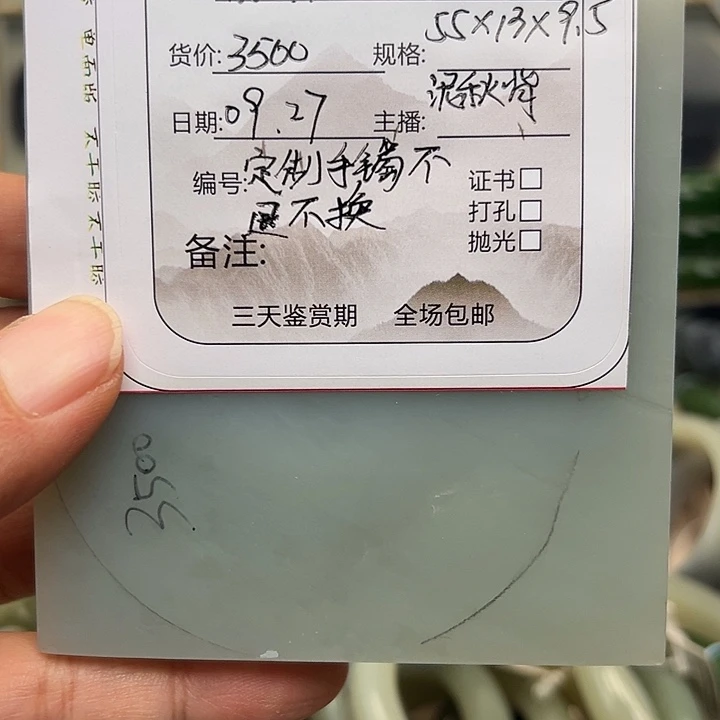 货价: 3500 规格: 55×13×9.5
日期: 09.27 主播: 泥秋背
编号: 定制手镯不
退不换
证书□
打孔□
抛光□
备注:
三天鉴赏期 全场包邮
3500